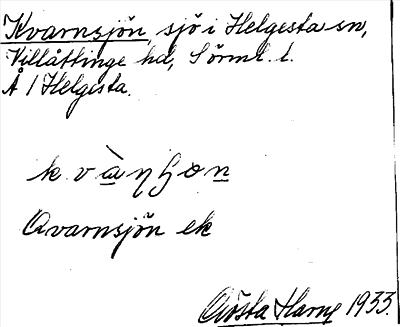 Kvarnsjön, sjö i Helgesta sn,
Villåttinge hd, Sörml. l.
Å 1 Helgesta.
kvàŋɧon
Qvarnsjön ek
Gösta Harne 1933.